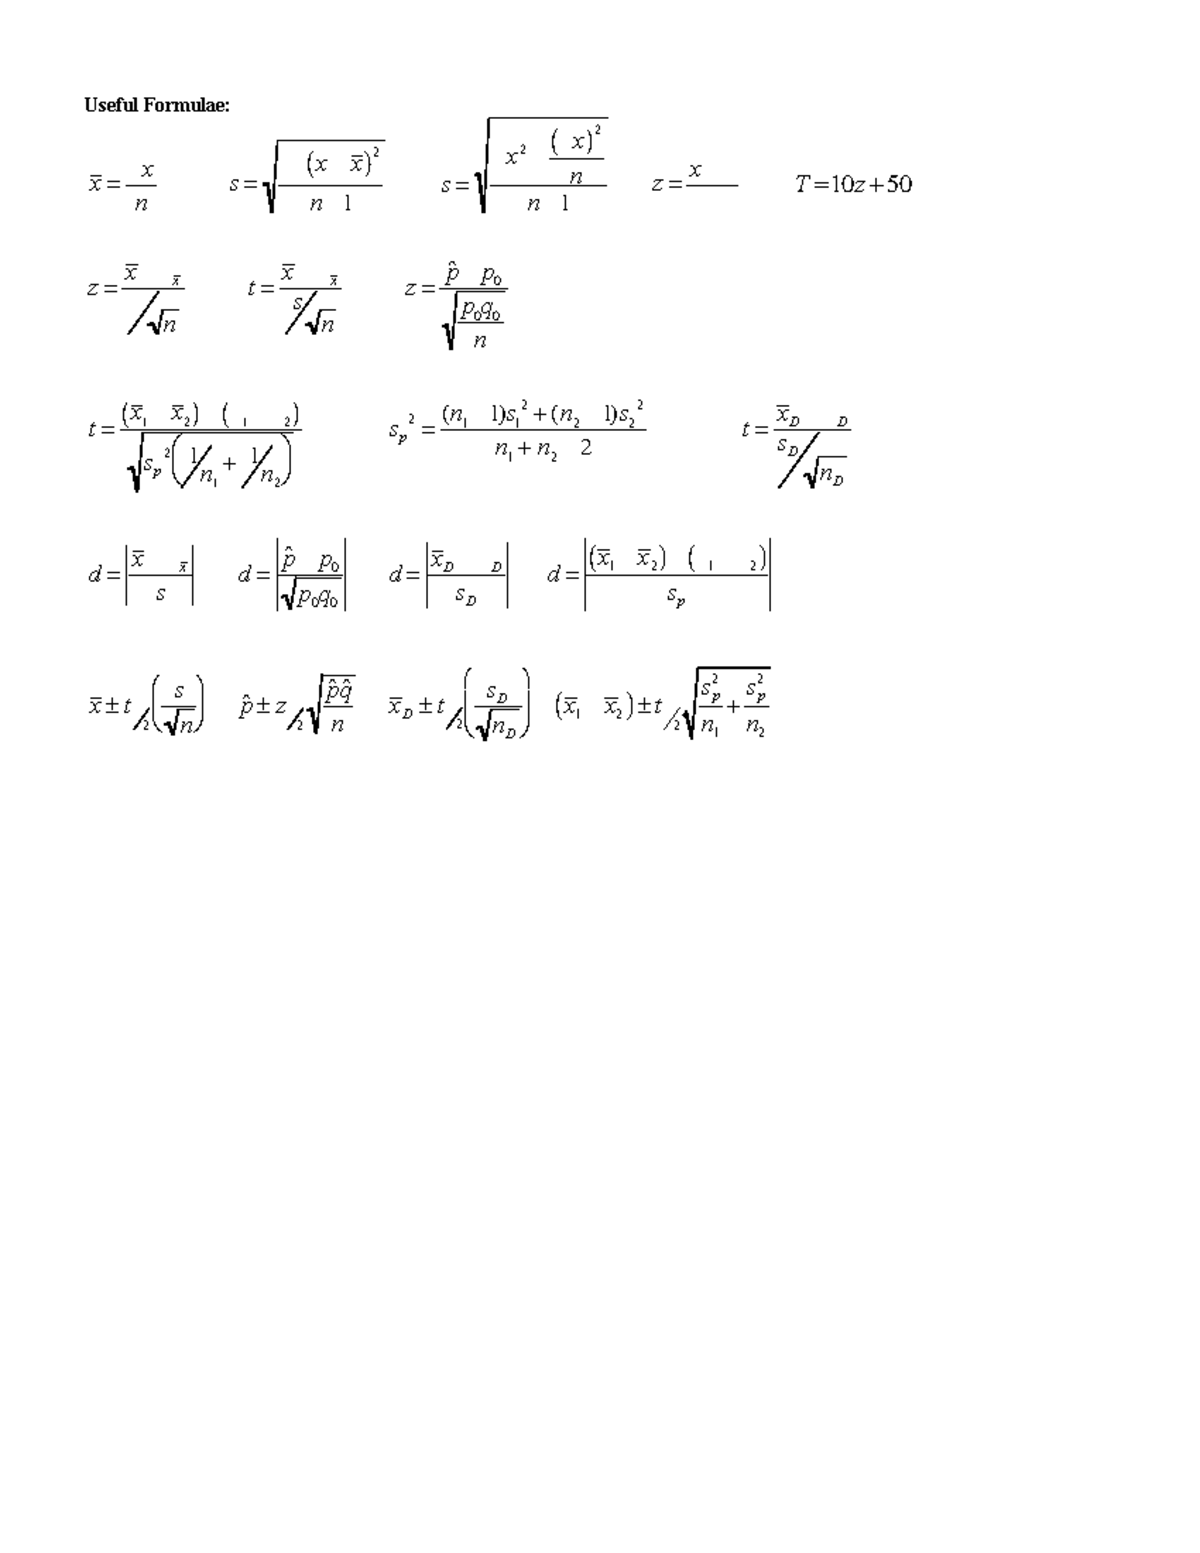 Useful Formulae:
x̄ = x / n    s = √( (x x̄)² / n 1 )    s = √( ( x² ( x)² / n ) / n 1 )    z = x /    T = 10z + 50
z = x̄ x̄ / ( / √n )    t = x̄ x̄ / ( s / √n )    z = p̂ p₀ / √( p₀q₀ / n )
t = (x̄₁ x̄₂) ( ₁ ₂) / √( sₚ² ( 1/n₁ + 1/n₂ ) )    sₚ² = (n₁ 1)s₁² + (n₂ 1)s₂² / n₁ + n₂ 2    t = x̄_D _D / ( s_D / √n_D )
d = | x̄ x̄ / s |    d = | p̂ p₀ / √p₀q₀ |    d = | x̄_D _D / s_D |    d = | (x̄₁ x̄₂) ( ₁ ₂) / sₚ |
x̄ ± t /2 ( s / √n )    p̂ ± z /2 √( p̂q̂ / n )    x̄_D ± t /2 ( s_D / √n_D )    (x̄₁ x̄₂) ± t /2 √( sₚ² / n₁ + sₚ² / n₂ )